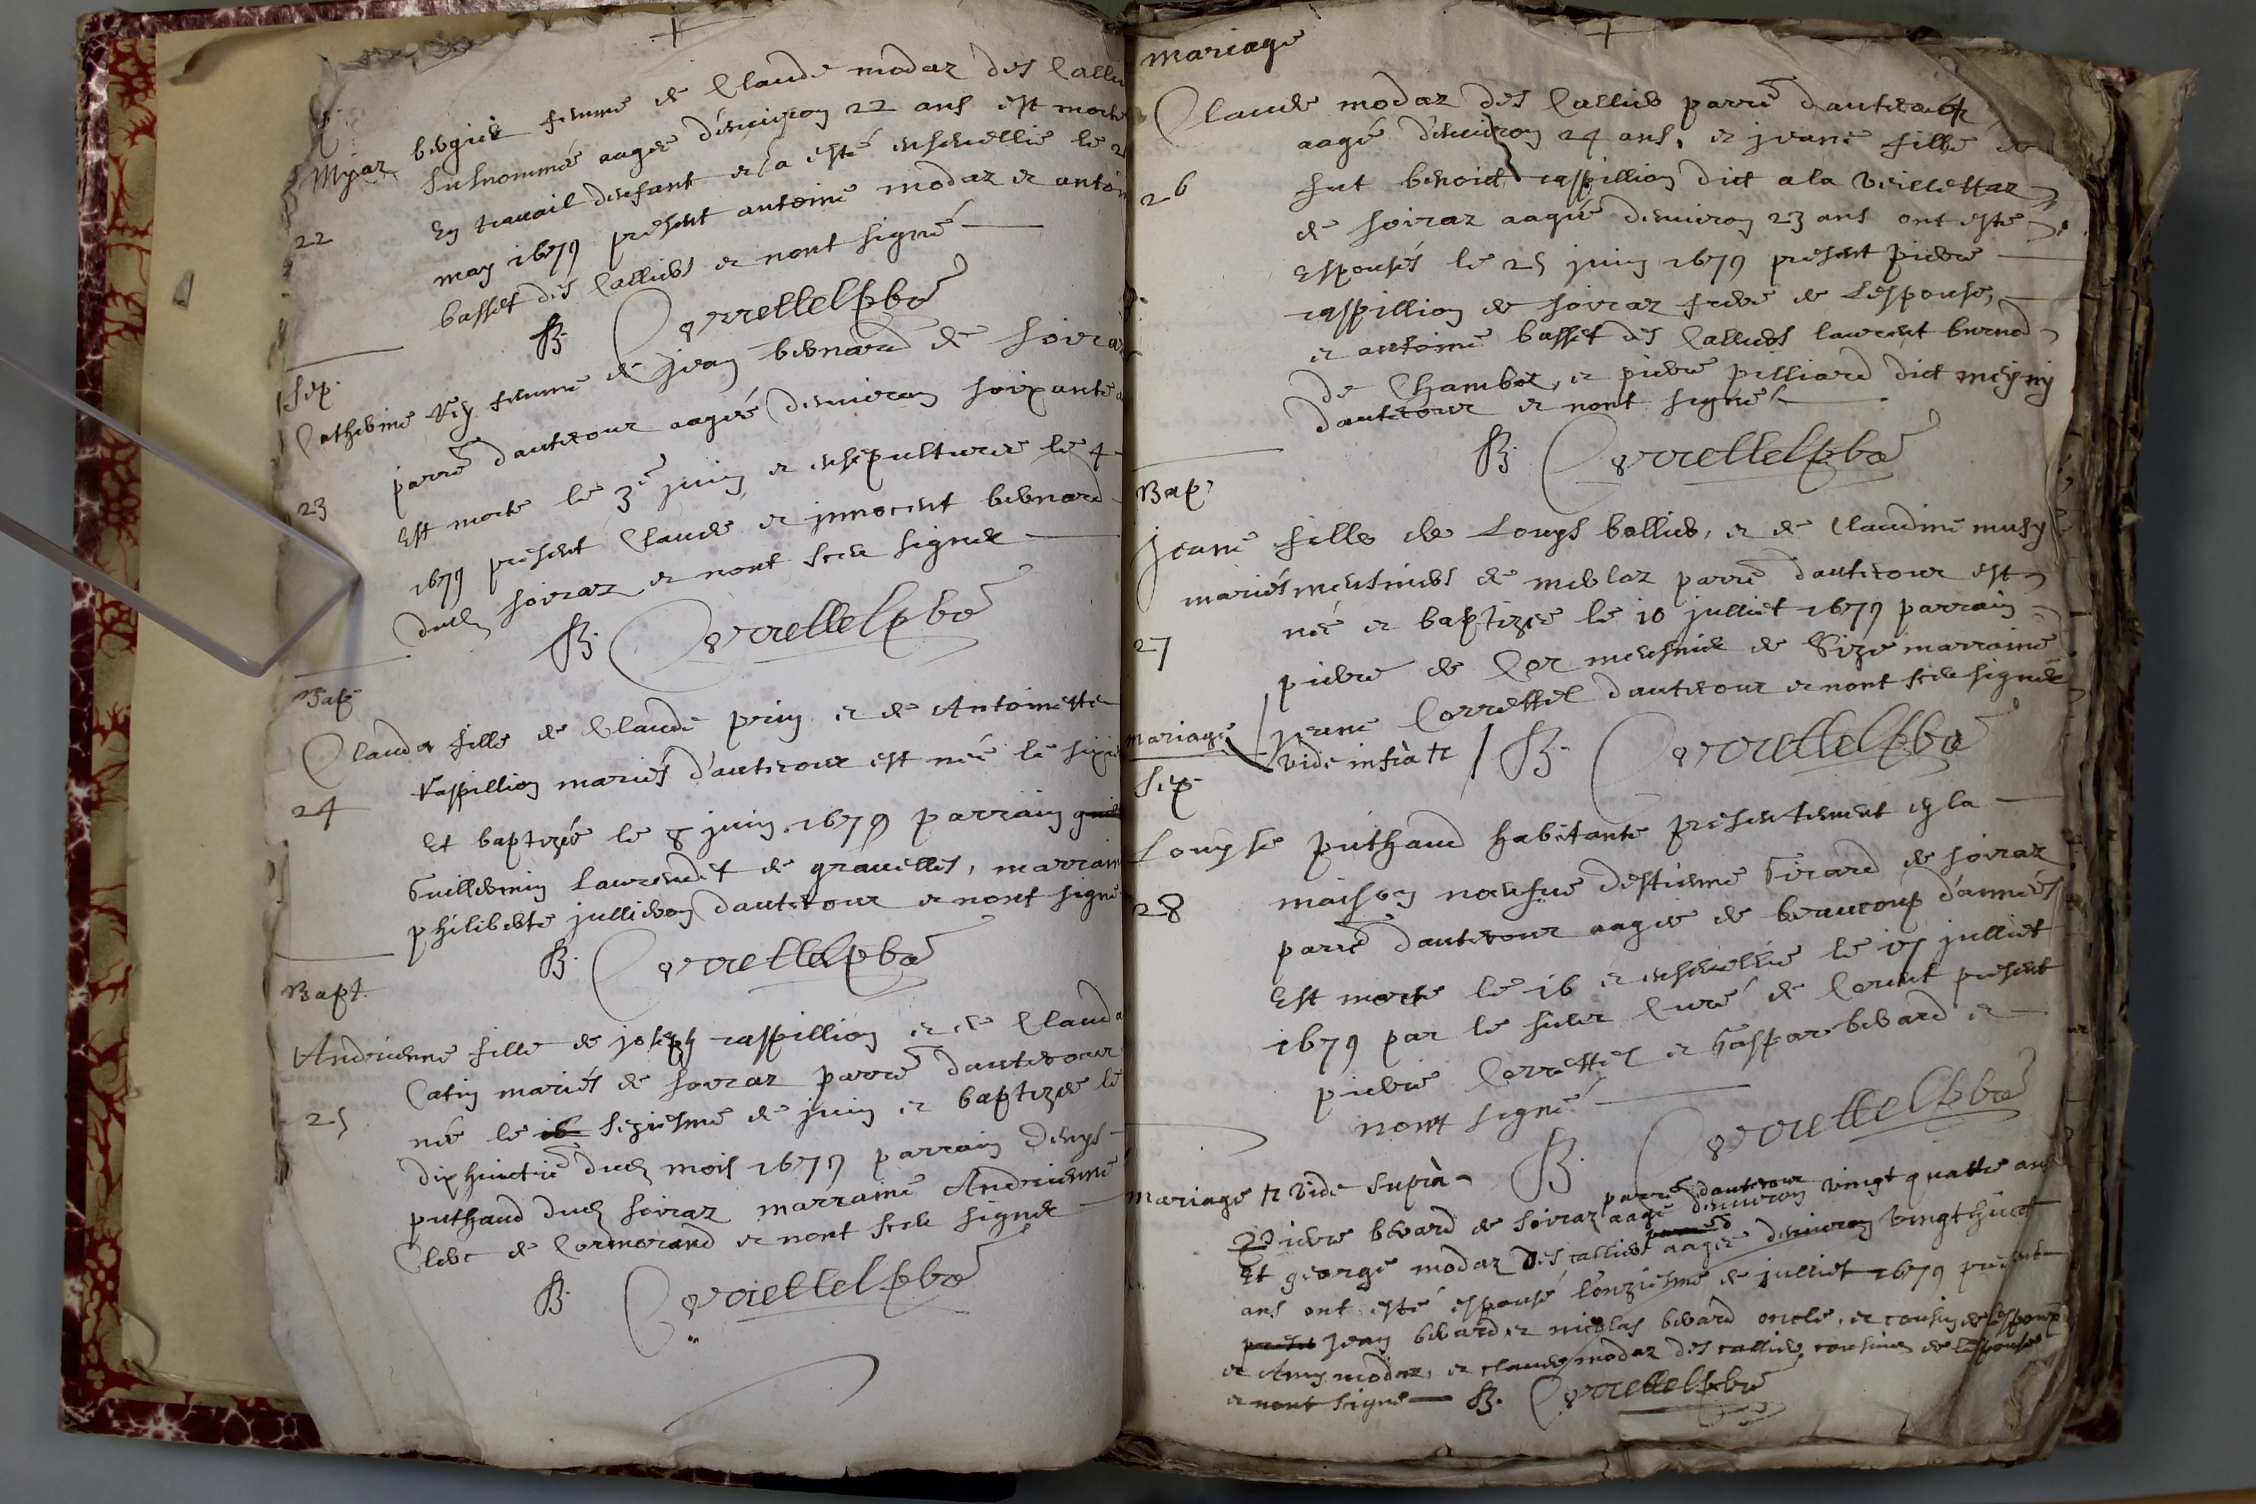 Myaz bergier femme de Claude modaz des Callie
susnommé aagee d'environ 22 ans est morte
22
En travail denfant et a esté ensevellie le 2
may 1679 present antoine modaz et anton
basset des Calliers et nont signé
B. Correttel Cbre
Sep.
Catherine Rey femme de Jean bernard de soiraz
parre d'auterour aagée denviron soixante a
23
Est morte le 3e juin et ensepulturee le 4
1679 present Claude et jnnocent bernard
dud soiraz et nont sceu signer
B. Correttel Cbre
Bap
Clauda fille de Claude prin et de Antoinette
Raspillion mariés d'auterour est née le sixie
24
Et baptizée le 8 juin 1679 parrain
Guillermin Laurendet de gravelles, marraine
philiberte jullieron d'auterour et nont signé
B. Correttel Cbre
Bapt.
Andrienne fille de joseph raspillion et de Clauda
Catin mariés de soiraz parre d'auterour
25
née le 16 seziesme de juin et baptizee le
dixhuictie dud mois 1679 parrain Denys
puthaud dud soiraz marraine Andrienne
Clerc de Cormorand et nont sceu signer
B. Correttel Cbre
mariage
Claude modaz des Calliers parre d'auterour
aagé d'environ 24 ans, et jeane fille de
26
fut benoict raspillion dict a la veillettaz
de soiraz aagée denviron 23 ans ont esté
Espousés le 25 juin 1679 present pierre
raspillion de soiraz frere de Lespouse,
et antoine basset des Calliers laurent burnod
de Chambor, et pierre pilliard dict meyny
dauterour et nont signé
B. Correttel Cbre
Bap.
Jeane fille de Louys bollier, et de Claudine musy
mariés meusniers de merloz parre d'auterour est
née et baptizée le 10 julliet 1679 parrain
27
pierre de Cor meusnier de Size marraine
Jeane Correttel d'auterour et nont sceu signer
mariage
vide infrà B. Correttel Cbre
Sep
Louyse puthaud habitante presentement en la
maison neufve d'estienne Girard de soiraz
28
parre d'auterour aagée de beaucoup d'années
Est morte le 16 et ensevellie le 17 julliet
1679 par le sieur Curé de Corent present
pierre Correttel et Gaspar berard et
nont signé
B. Correttel Cbre
mariage vide suprà
parre d'auterour
Pierre berard de soiraz aagé denviron vingt quattre ans
Et george modaz des calliers aagée denviron vingthuict
ans ont esté espousé l'onziesme de julliet 1679 present
present Jean berard et nicolas berard oncle, et cousin de lespoux
et Amy modaz, et claude modaz des calliers cousins de lespouse
et nont signé B. Correttel Cbre